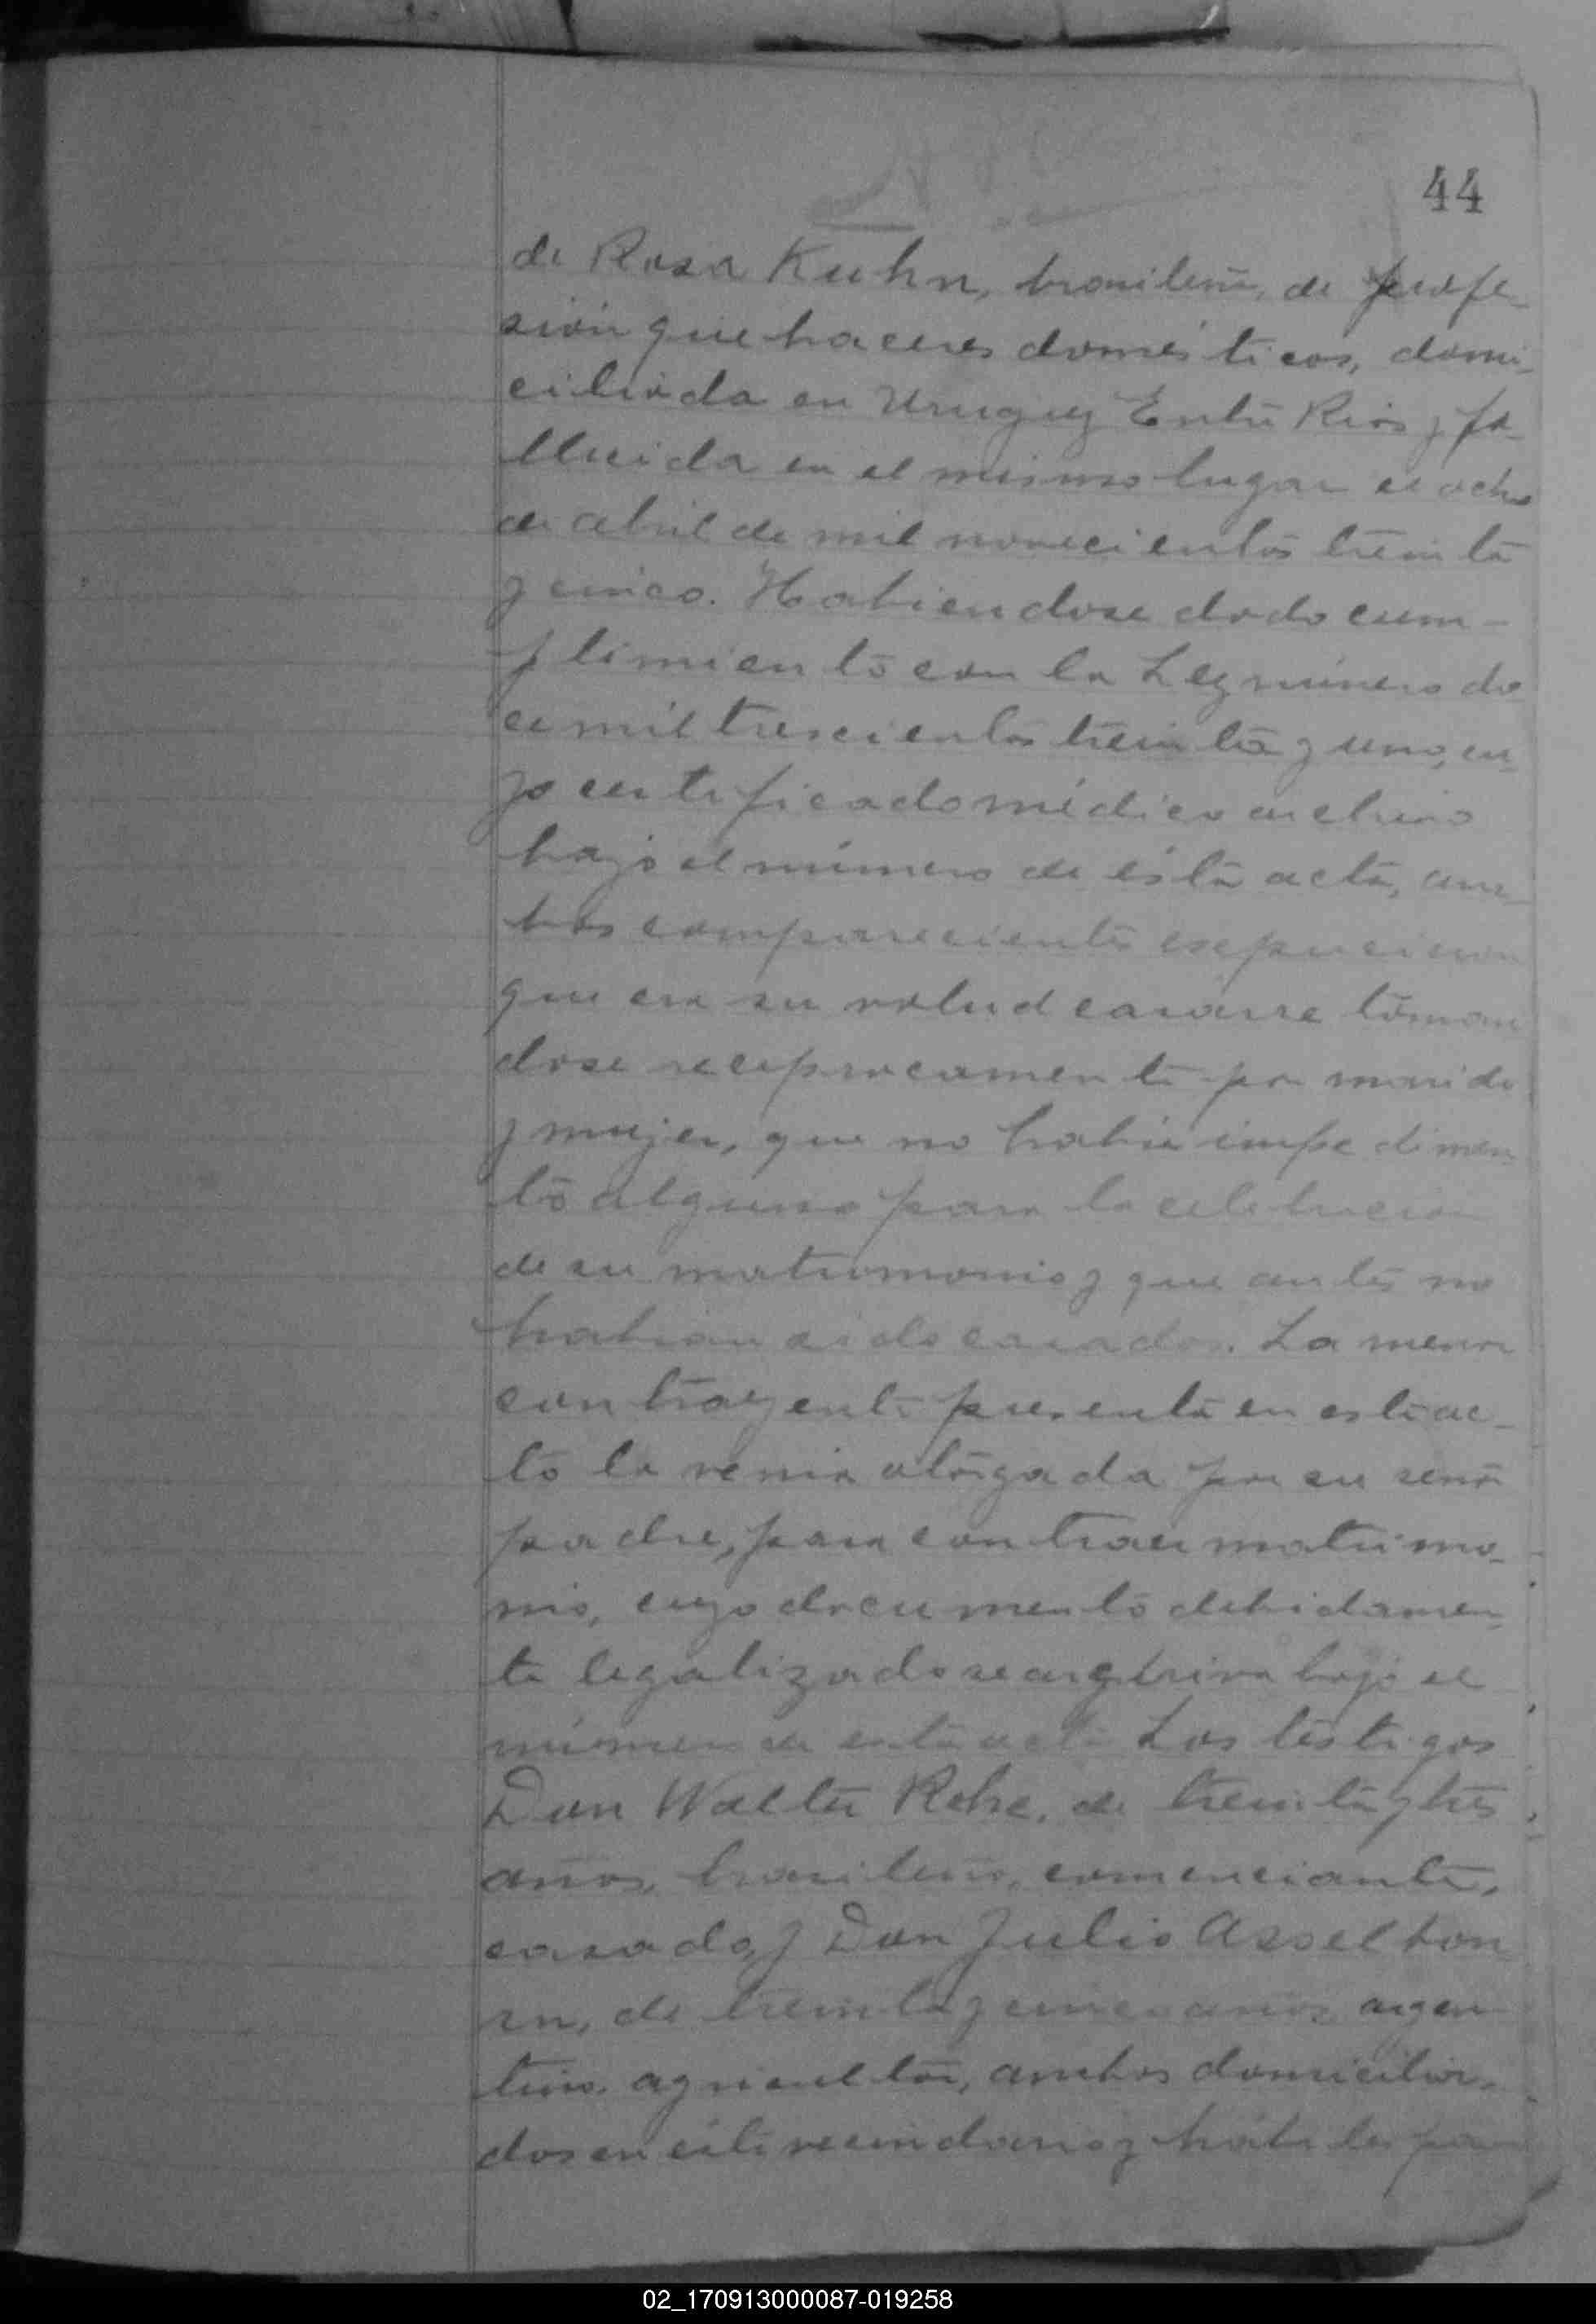 44
de Rosa Kuhn, brasileña, de profe-
sión que haceres domésticos, domi-
ciliada en Uruguay Entre Rios y fa-
llecida en el mismo lugar el ocho
de abril de mil novecientos treinta
y cinco. Habiendose dado cum-
plimiento con la Ley número do
ce mil trescientos treinta y uno, cu-
yo certificado médico archivo
bajo el número de ésta acta, am-
bos comparecientes
que era su volud casarse toman
dose reciprocamente por marido
y mujer, que no habia impedimen
to alguno para la celebración
de su matrimonio y que antes no
habian sido casados. La menor
contrayente presenta en este ac-
to la venia otorgada por su señor
padre, para contraer matrimo-
nio, cuyo documento debidamen
te legalizado se archiva bajo el
número de esta acta. Los testigos
Don Walter Rehe, de treinta y tres
años, brasileño, comerciante,
casado, y Don Julio Asselbon
rn, de treinta y cinco años, argen
tino, agricultor, ambos domicilia-
dos en éste vecindario y hábiles para
02_170913000087-019258